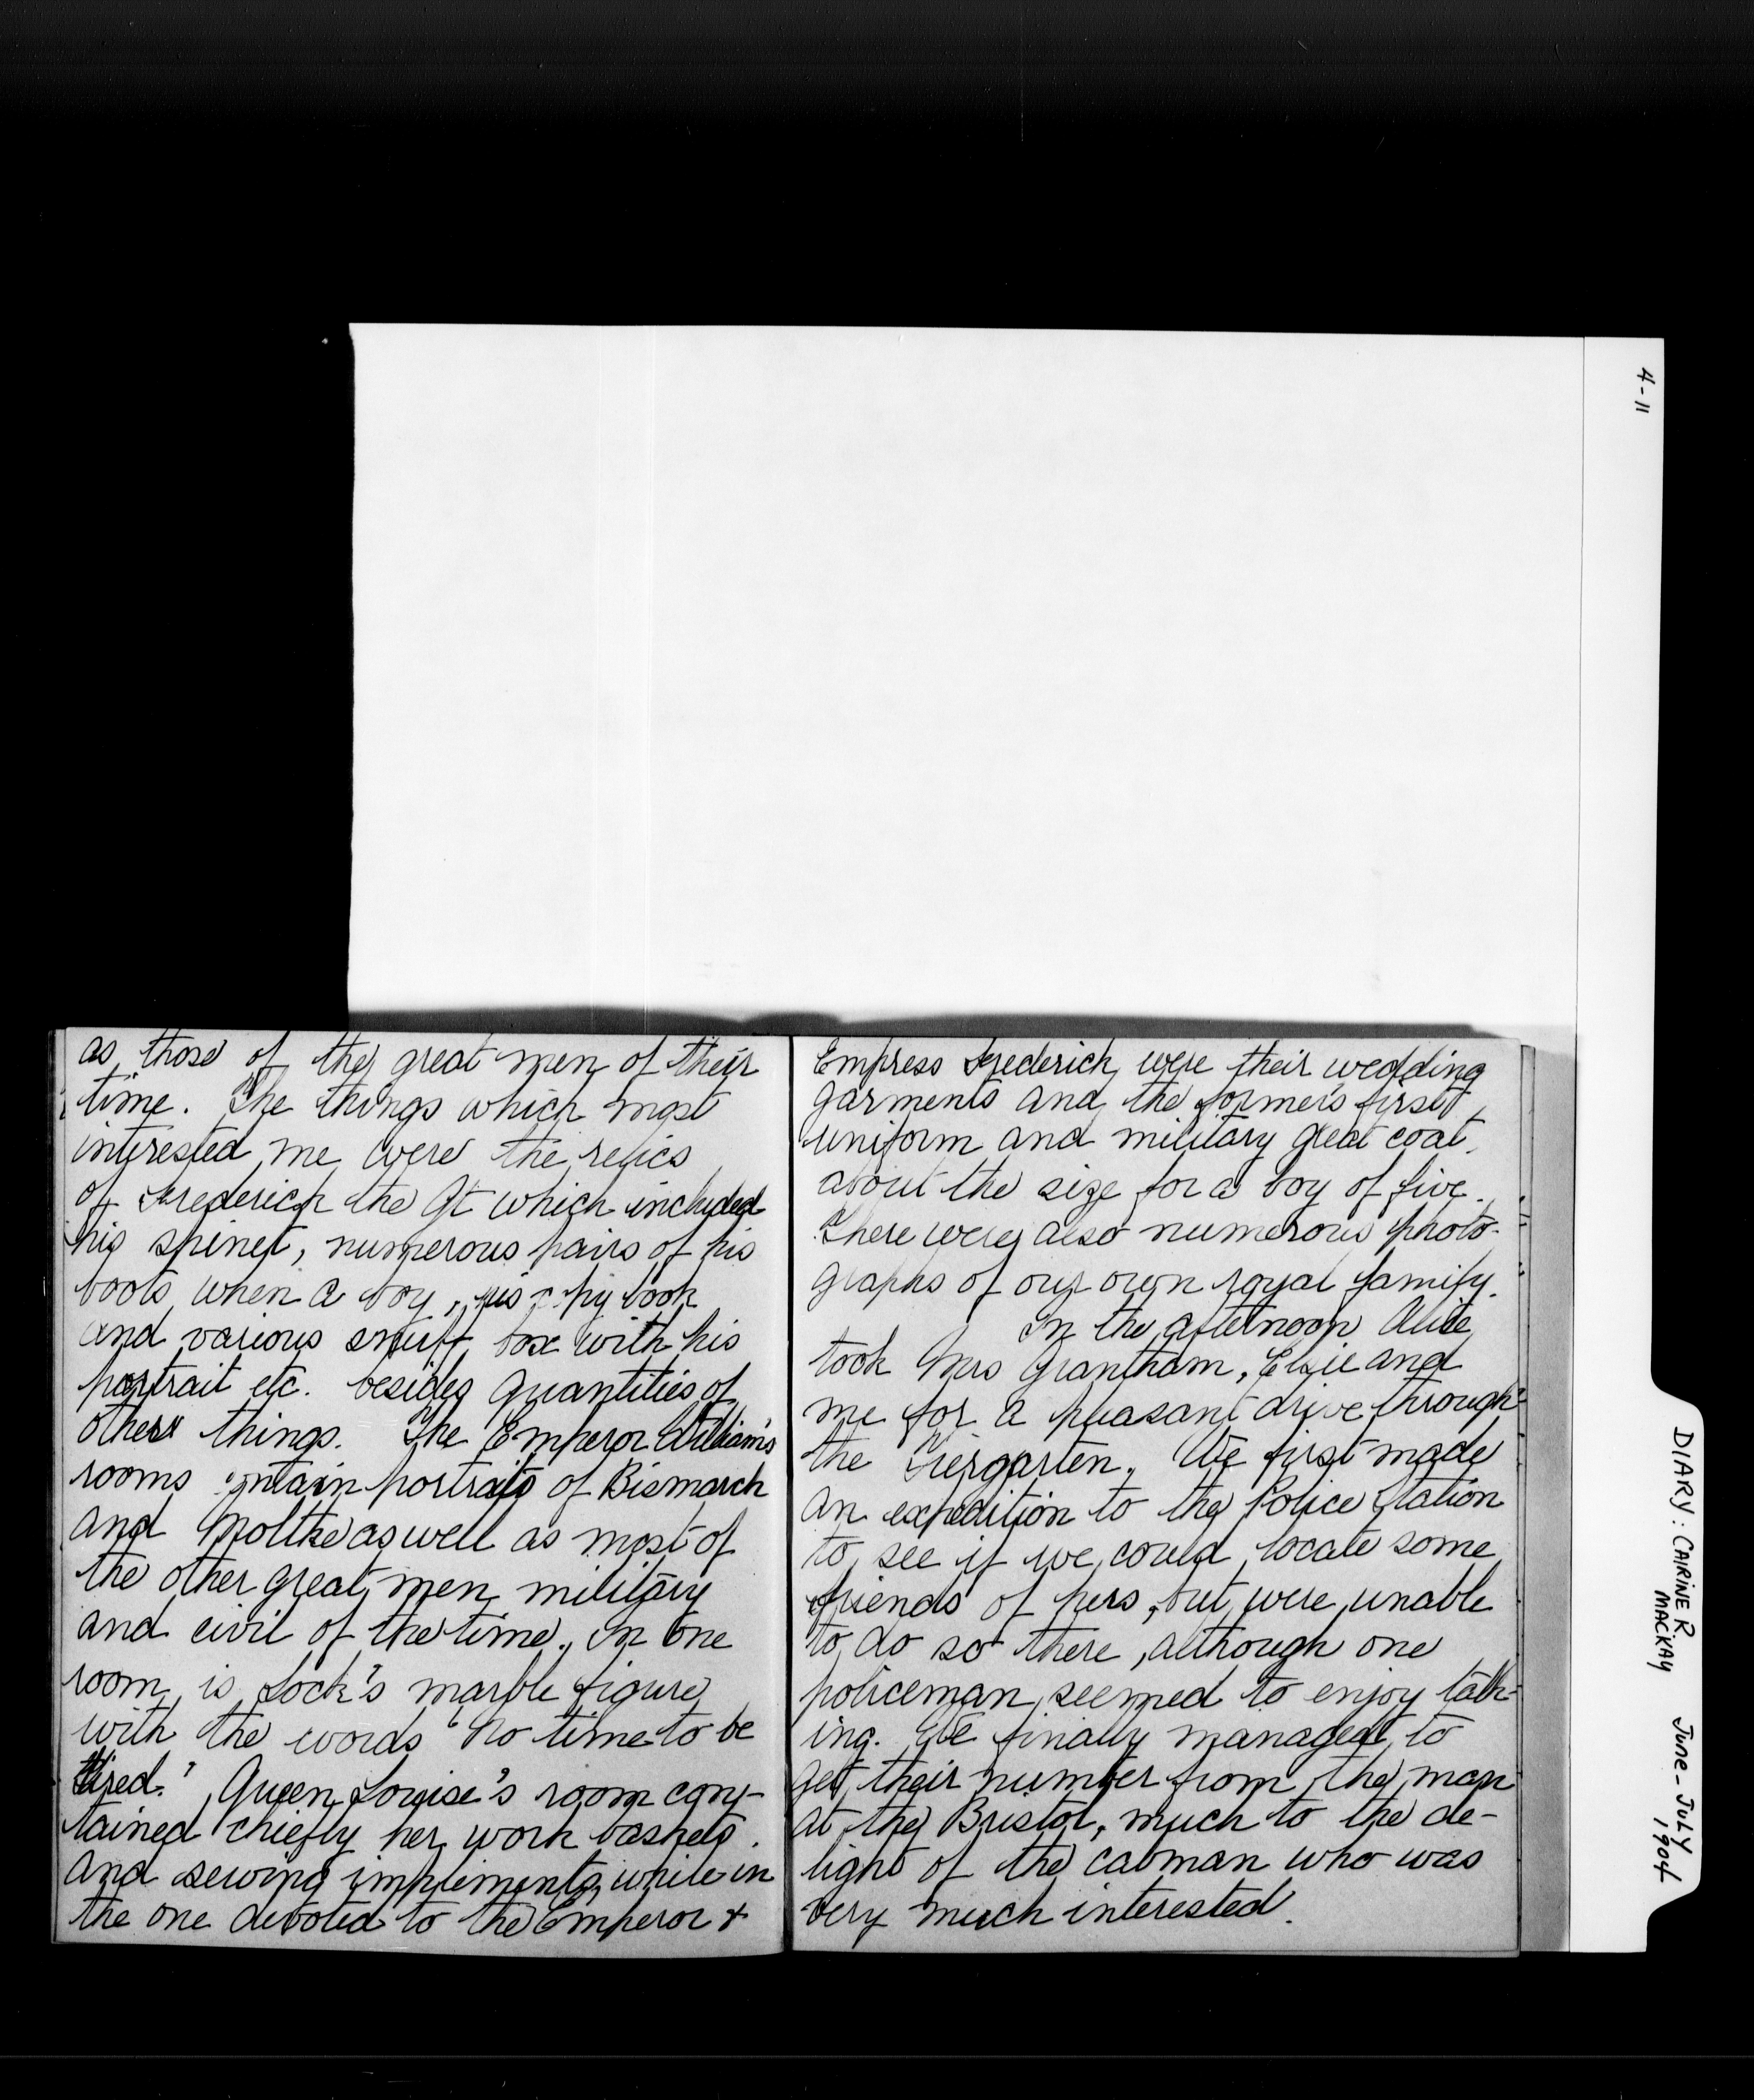 4-11
DIARY: CAIRINE R. MACKAY
June - July 1904
as those of the great men of their
time. The things which most
interested me were the relics
of Frederick the Gt which included
his spinet, numerous pairs of his
boots when a boy, his copy book
and various snuff box with his
portrait etc. besides quantities of
other things. The Emperor William's
rooms contain portraits of Bismarck
and Moltke as well as most of
the other great men military
and civil of the time. In one
room is Lock's marble figure
with the words "No time to be
tired." Queen Louise's room con-
tained chiefly her work baskets.
and sewing implements while in
the one devoted to the Emperor &
Empress Frederick were their wedding
garments and the former's first
uniform and military great coat.
about the size for a boy of five.
There were also numerous photo-
graphs of our own royal family.
In the afternoon Alice
took Mrs Grantham, Elsie and
me for a pleasant drive through
the Tiergarten. We first made
an expedition to the Police Station
to see if we could locate some
friends of hers, but were unable
to do so there, although one
policeman seemed to enjoy talk-
ing. We finally managed to
get their number from the man
at the Bristol, much to the de-
light of the cabman who was
very much interested.